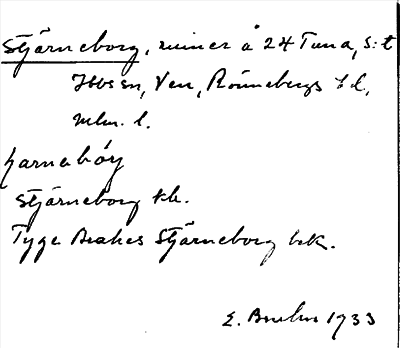 Stjärneborg, ruiner å 24 Tuna, S:t
Ibbs sn, Ven, Rönnebergs hd,
Mlm. l.
Stjärneborg kb.
Tyge Brahes Stjärneborg bek.
E. Bruhn 1933